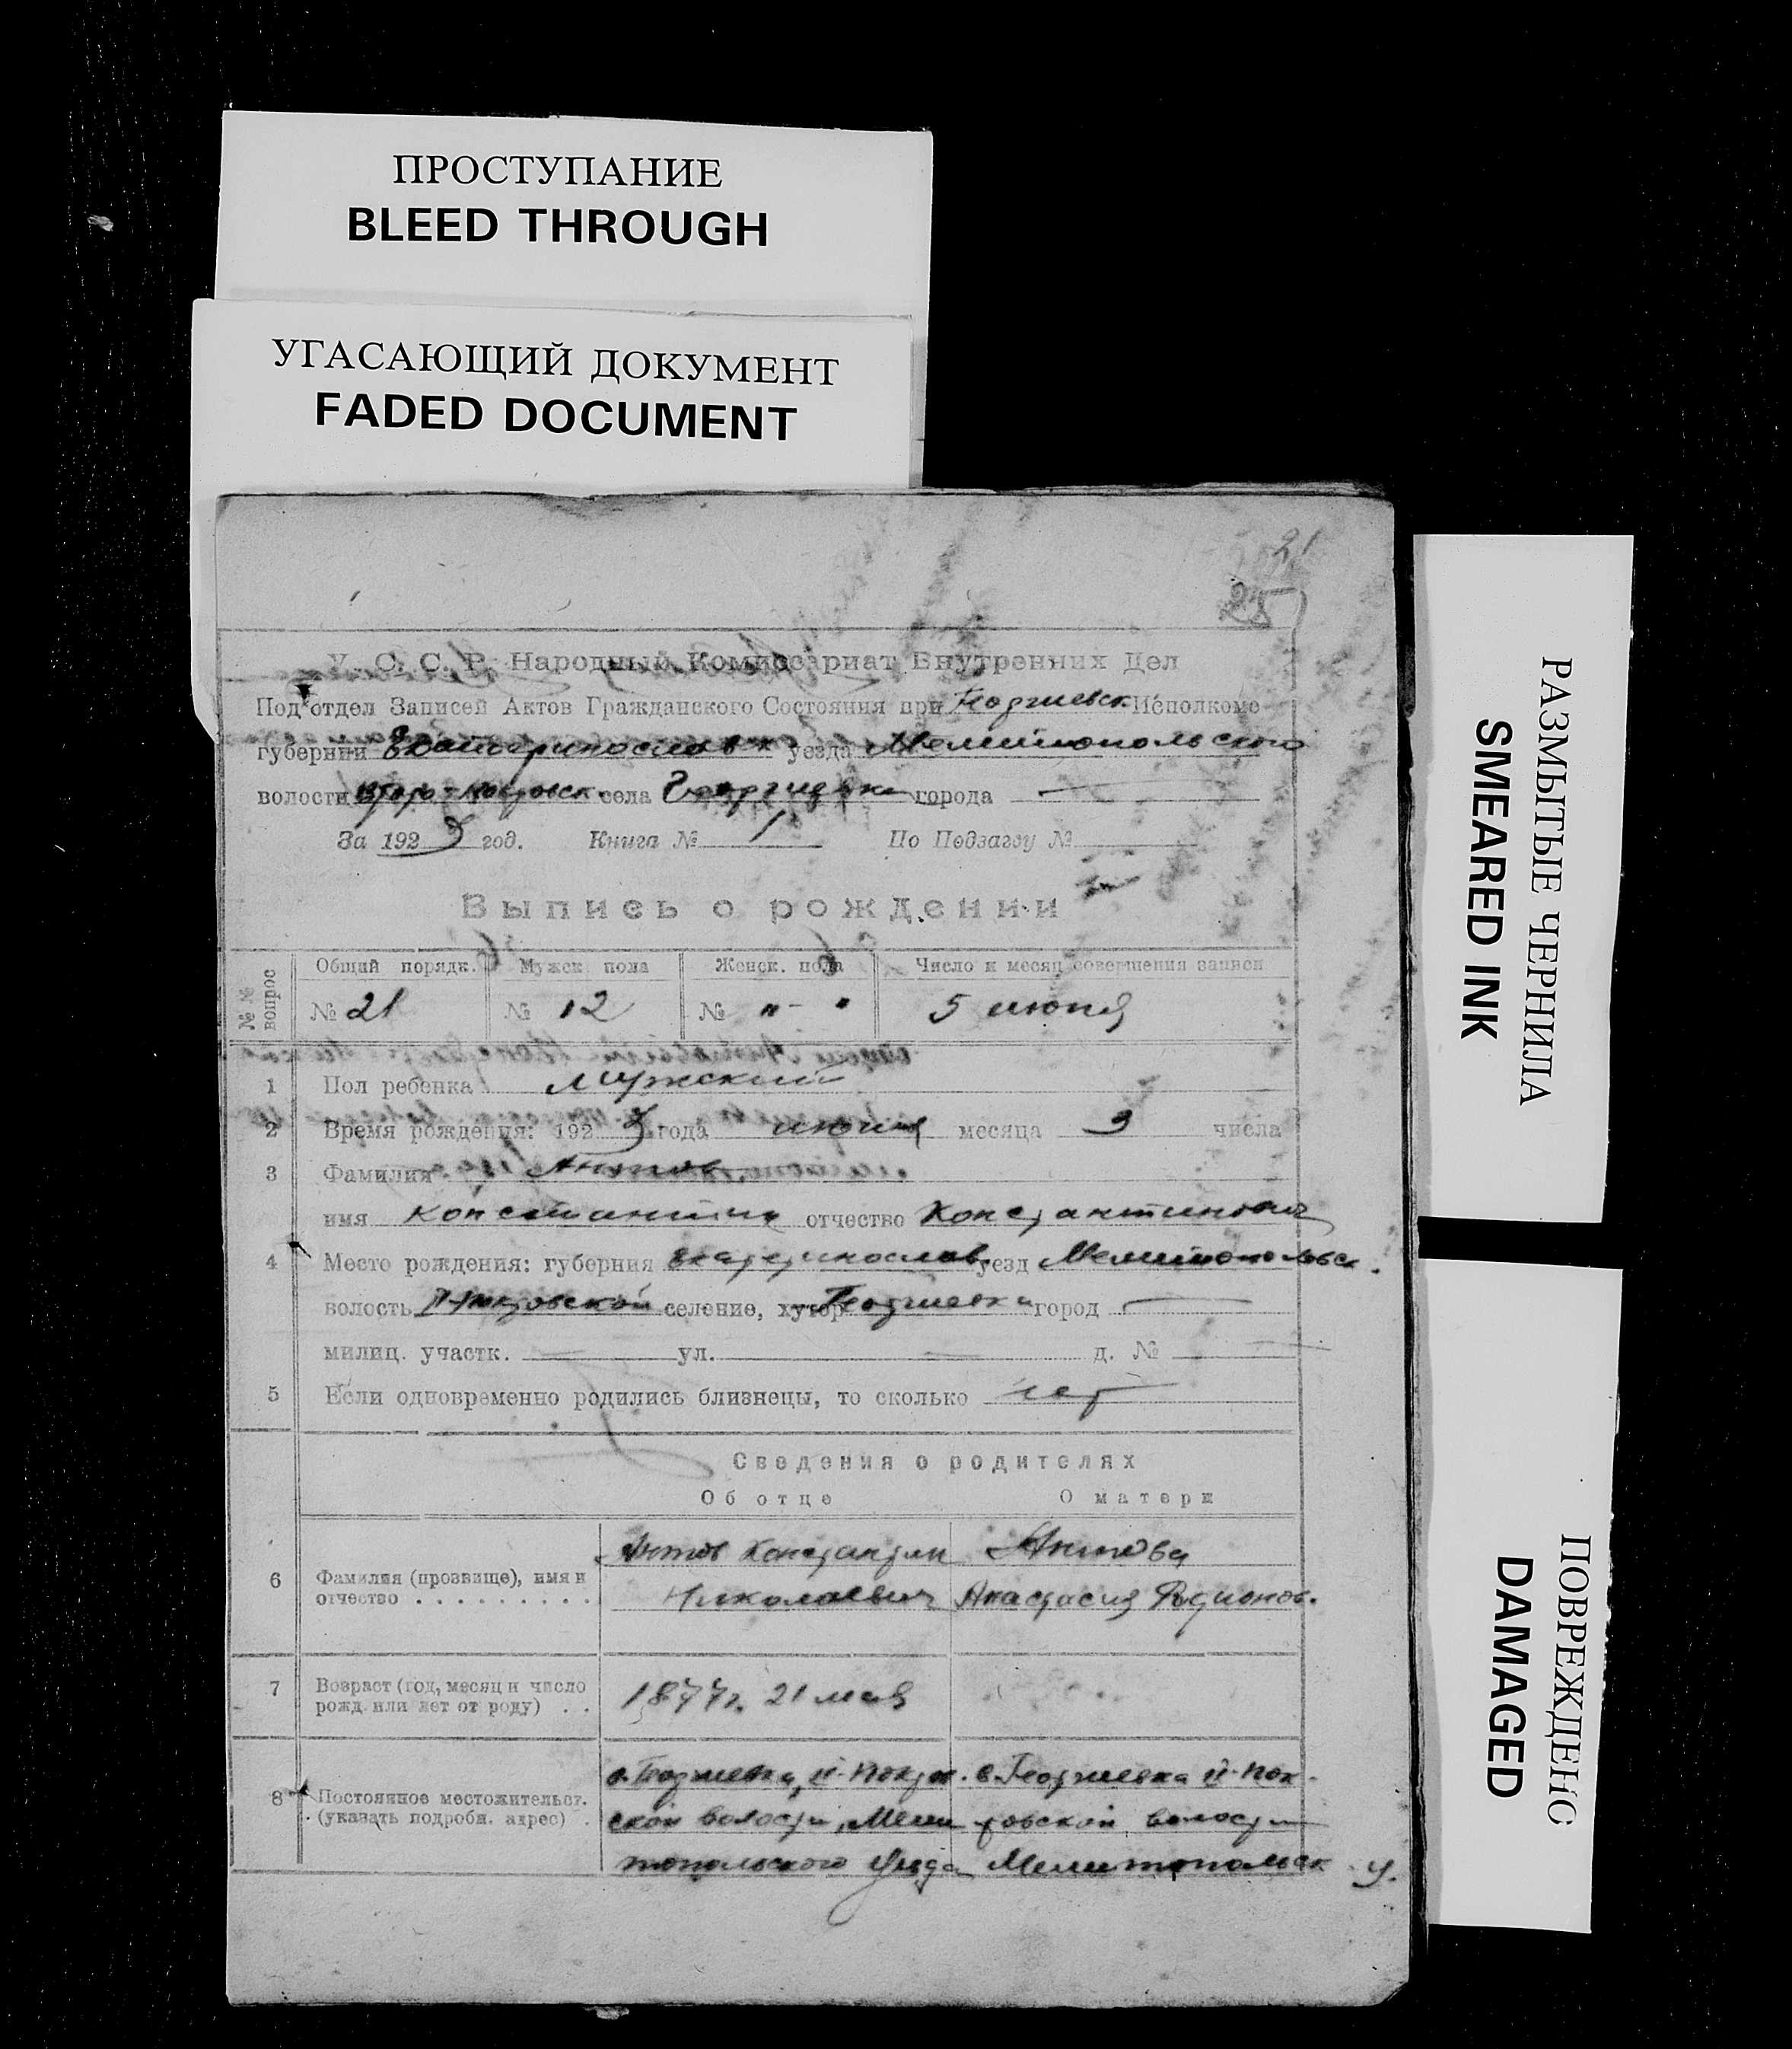 ПРОСТУПАНИЕ
BLEED THROUGH
УГАСАЮЩИЙ ДОКУМЕНТ
FADED DOCUMENT
21
25
У. С. С. Р. Народный Комиссариат Внутренних Дел
Под'отдел Записей Актов Гражданского Состояния при Георгиевск. Исполкоме
губернии Екатеринославск уезда Мелитопольского
волости Второ-Покровск. села Георгиевки города —
За 192 год. Книга № 1 По Подзагсу №
Выпись о рождении
№№ вопрос Общий порядк. Мужск. пола Женск. пола Число и месяц совершения записи
№ 21 № 12 № „ - " 5 июня
1 Пол ребенка мужской
2 Время рождения: 192 года июня месяца 3 числа
3 Фамилия Антов
имя Константин отчество Константинович
4 Место рождения: губерния Екатеринослав. уезд Мелитопольск.
волость П-Покровской селение, хутор Георгиевка город —
милиц. участк. — ул. — д. № —
5 Если одновременно родились близнецы, то сколько нет
Сведения о родителях
Об отце О матери
6 Фамилия (прозвище), имя и отчество . . . . . . . . .
Антов Константин
Николаевич
Антова
Анастасия Родионов.
7 Возраст (год, месяц и число рожд. или лет от роду) . .
1877г. 21 мая
8 Постоянное местожительст. (указать подробн. адрес) .
с. Георгиевка, II-Покров-
ской волости, Мели
топольского уезда
с. Георгиевка II-Пок-
ровской волости
Мелитопольск у.
РАЗМЫТЫЕ ЧЕРНИЛА
SMEARED INK
ПОВРЕЖДЕНО
DAMAGED